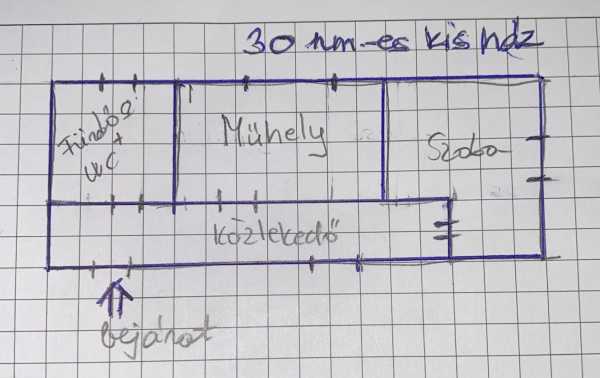 30 nm-es kis ház
Fürdősz
+
WC
Műhely
Szoba
Közlekedő
bejárat